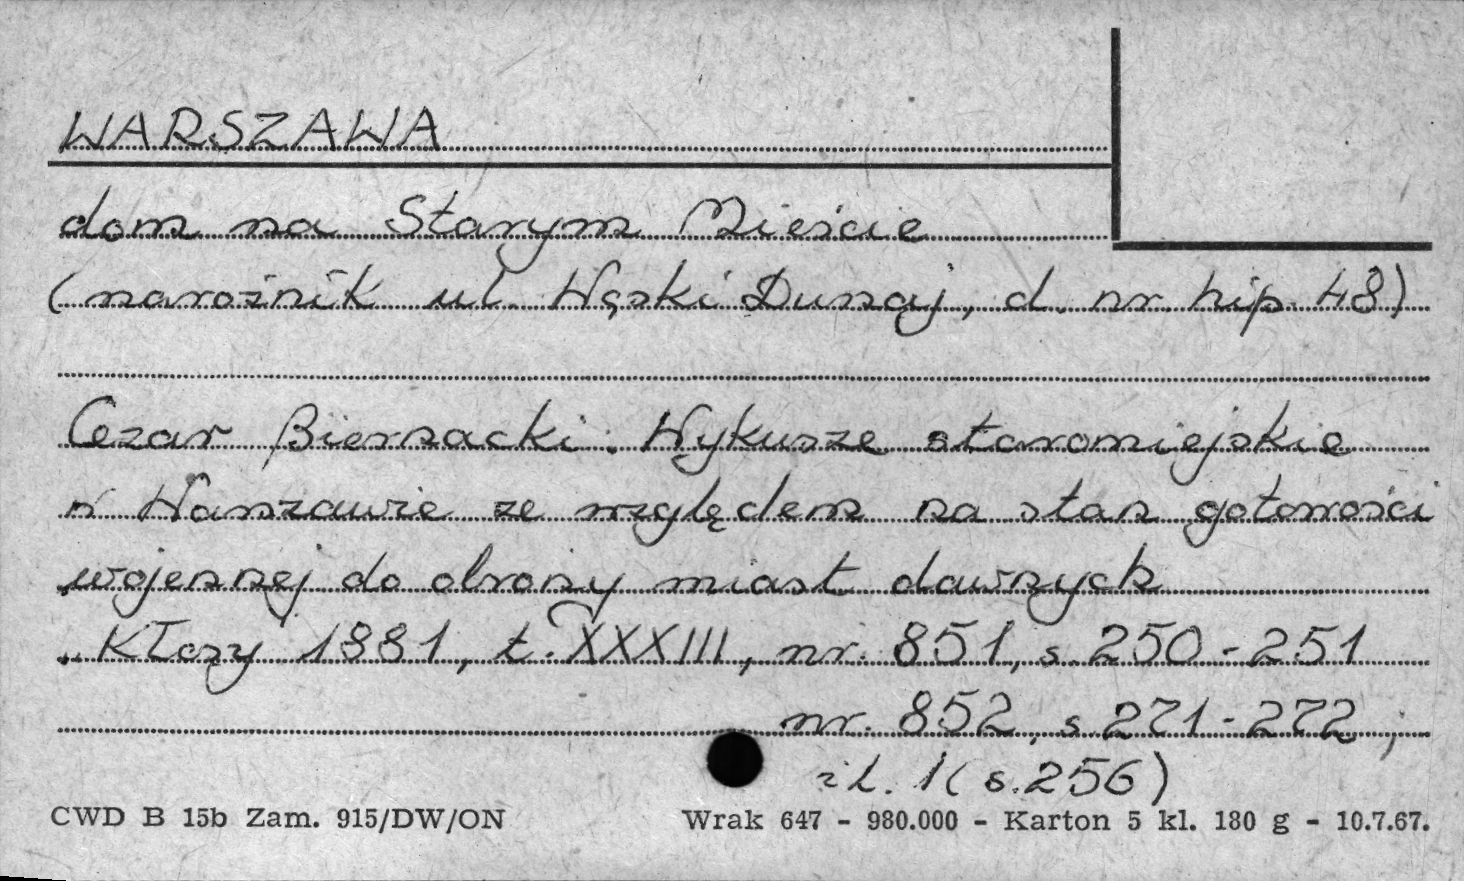 WARSZAWA
dom na Starym Mieście
(narożnik ul. Wąski Dunaj, d. nr. hip. 48)
Cezar Biernacki: Wykusze staromiejskie
w Warszawie ze względem na stan gotowości
wojennej do obrony miast dawnych
„Kłosy 1881, t. XXXIII, nr. 851, s. 250-251
nr. 852, s. 271-272,
il. 1 (s. 256)
CWD B 15b Zam. 915/DW/ON Wrak 647 - 980.000 - Karton 5 kl. 180 g - 10.7.67.